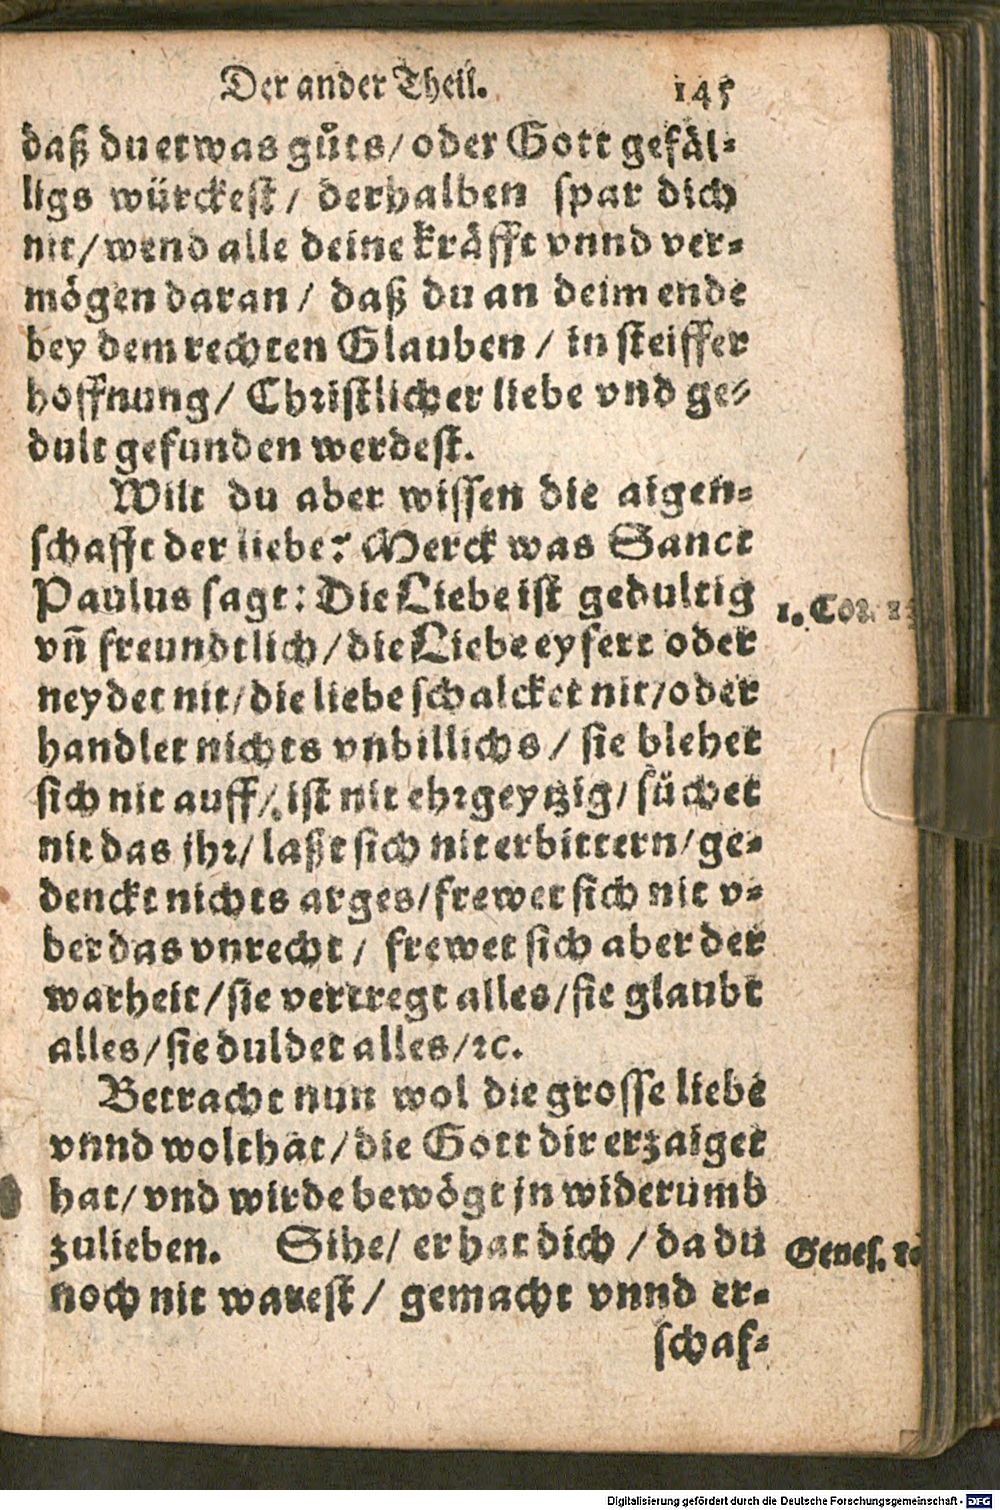 Der ander Theil. 145
daß du etwas gůts/ oder Gott gefäl-
ligs würckest/ derhalben spar dich
nit/ wend alle deine kräfft vnnd ver-
mögen daran/ daß du an deim ende
bey dem rechten Glauben/ in steiffer
hoffnung/ Christlicher liebe vnd ge-
dult gefunden werdest.
Wilt du aber wissen die aigen-
schafft der liebe? Merck was Sanct
Paulus sagt: Die Liebe ist gedultig
vñ freundtlich/ die Liebe eyfert oder
neydet nit/ die liebe schalcket nit/ oder
handlet nichts vnbillichs/ sie blehet
sich nit auff/ ist nit ehrgeytzig/ süchet
nit das jhr/ laßt sich nit erbittern/ ge-
denckt nichts arges/ frewet sich nit v-
ber das vnrecht/ frewet sich aber der
warheit/ sie vertregt alles/ sie glaubt
alles/ sie duldet alles/ ꝛc.
Betracht nun wol die grosse liebe
vnnd wolthat/ die Gott dir erzaiget
hat/ vnd wirde bewögt jn widerumb
zulieben. Sihe/ er hat dich/ da du
noch nit warest/ gemacht vnnd er-
schaf-
1. Cor. 13
Genes.
Digitalisierung gefördert durch die Deutsche Forschungsgemeinschaft - DFG